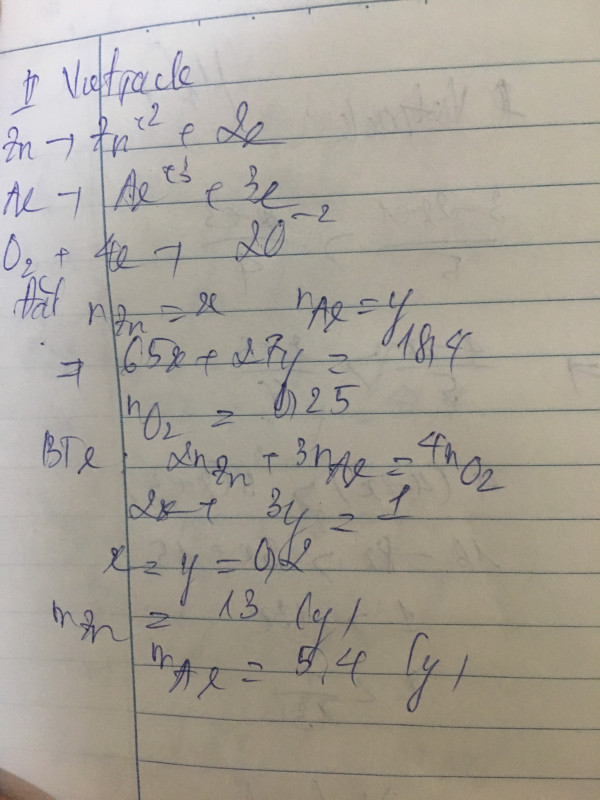 II Vietjack
Zn → Zn⁺² + 2e
Al → Al⁺³ + 3e
O₂ + 4e → 2O⁻²
Đặt n_Zn = x n_Al = y
⇒ 65x + 27y = 18,4
n_O₂ = 0,25
BTe: 2n_Zn + 3n_Al = 4n_O₂
2x + 3y = 1
x = y = 0,2
m_Zn = 13 (g)
m_Al = 5,4 (g)